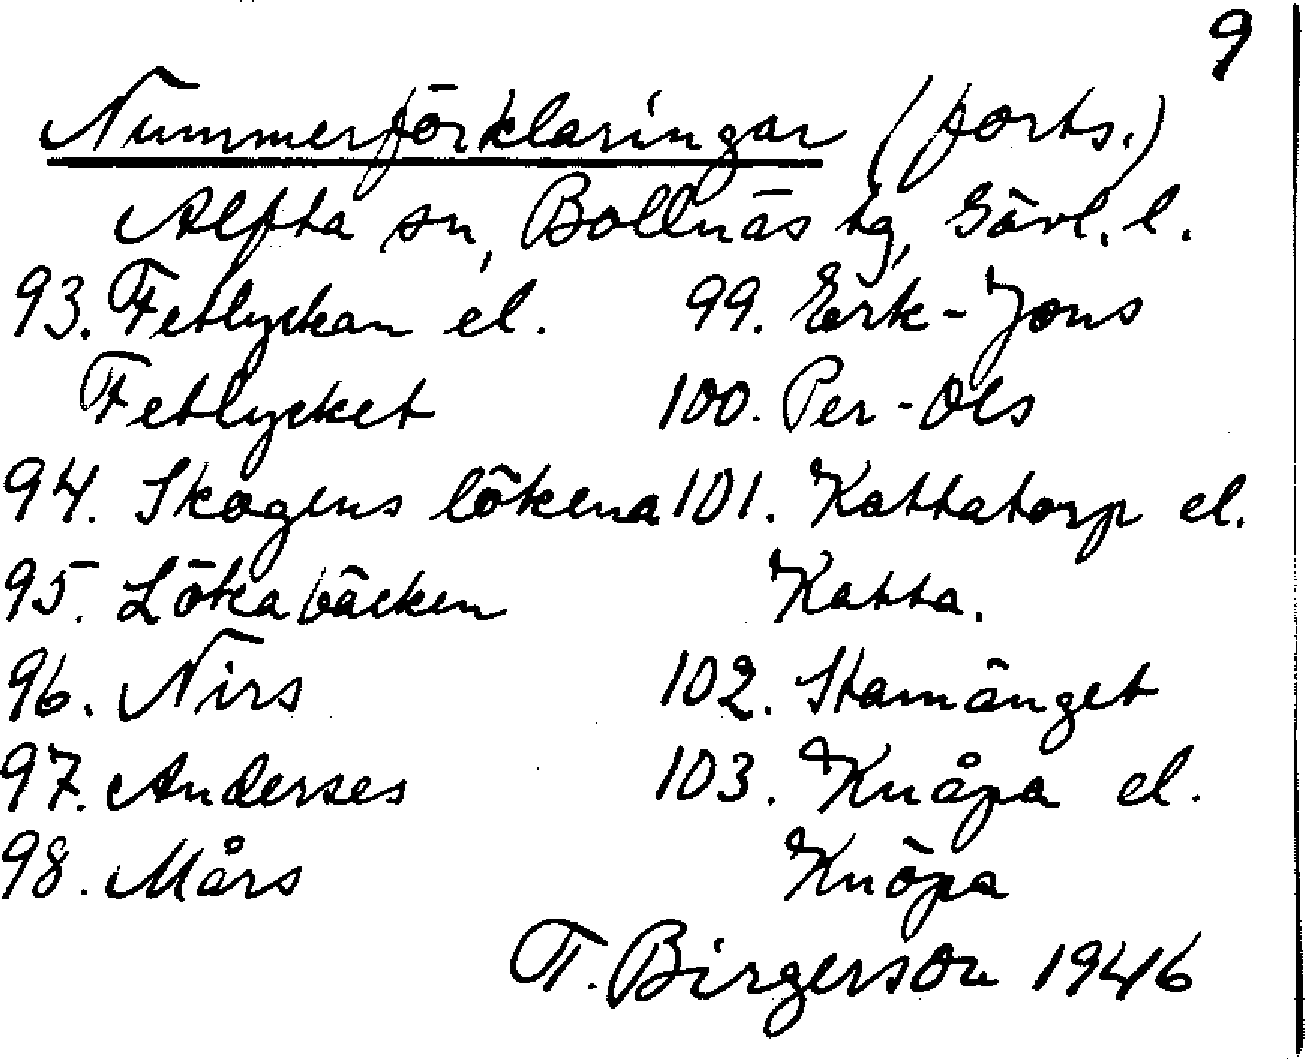 9
Nummerförklaringar (forts.)
Alfta sn, Bollnäs tg, Gävl. l.
93. Fetlyckan el.
Fetlycket
94. Skogens lökena
95. Lökabäcken
96. Nirs
97. Anderses
98. Mårs
99. Erk-Jons
100. Per-Ols
101. Kattatorp el.
Katta.
102. Stamänget
103. Knåpa el.
Knöpa
T. Birgerson 1946